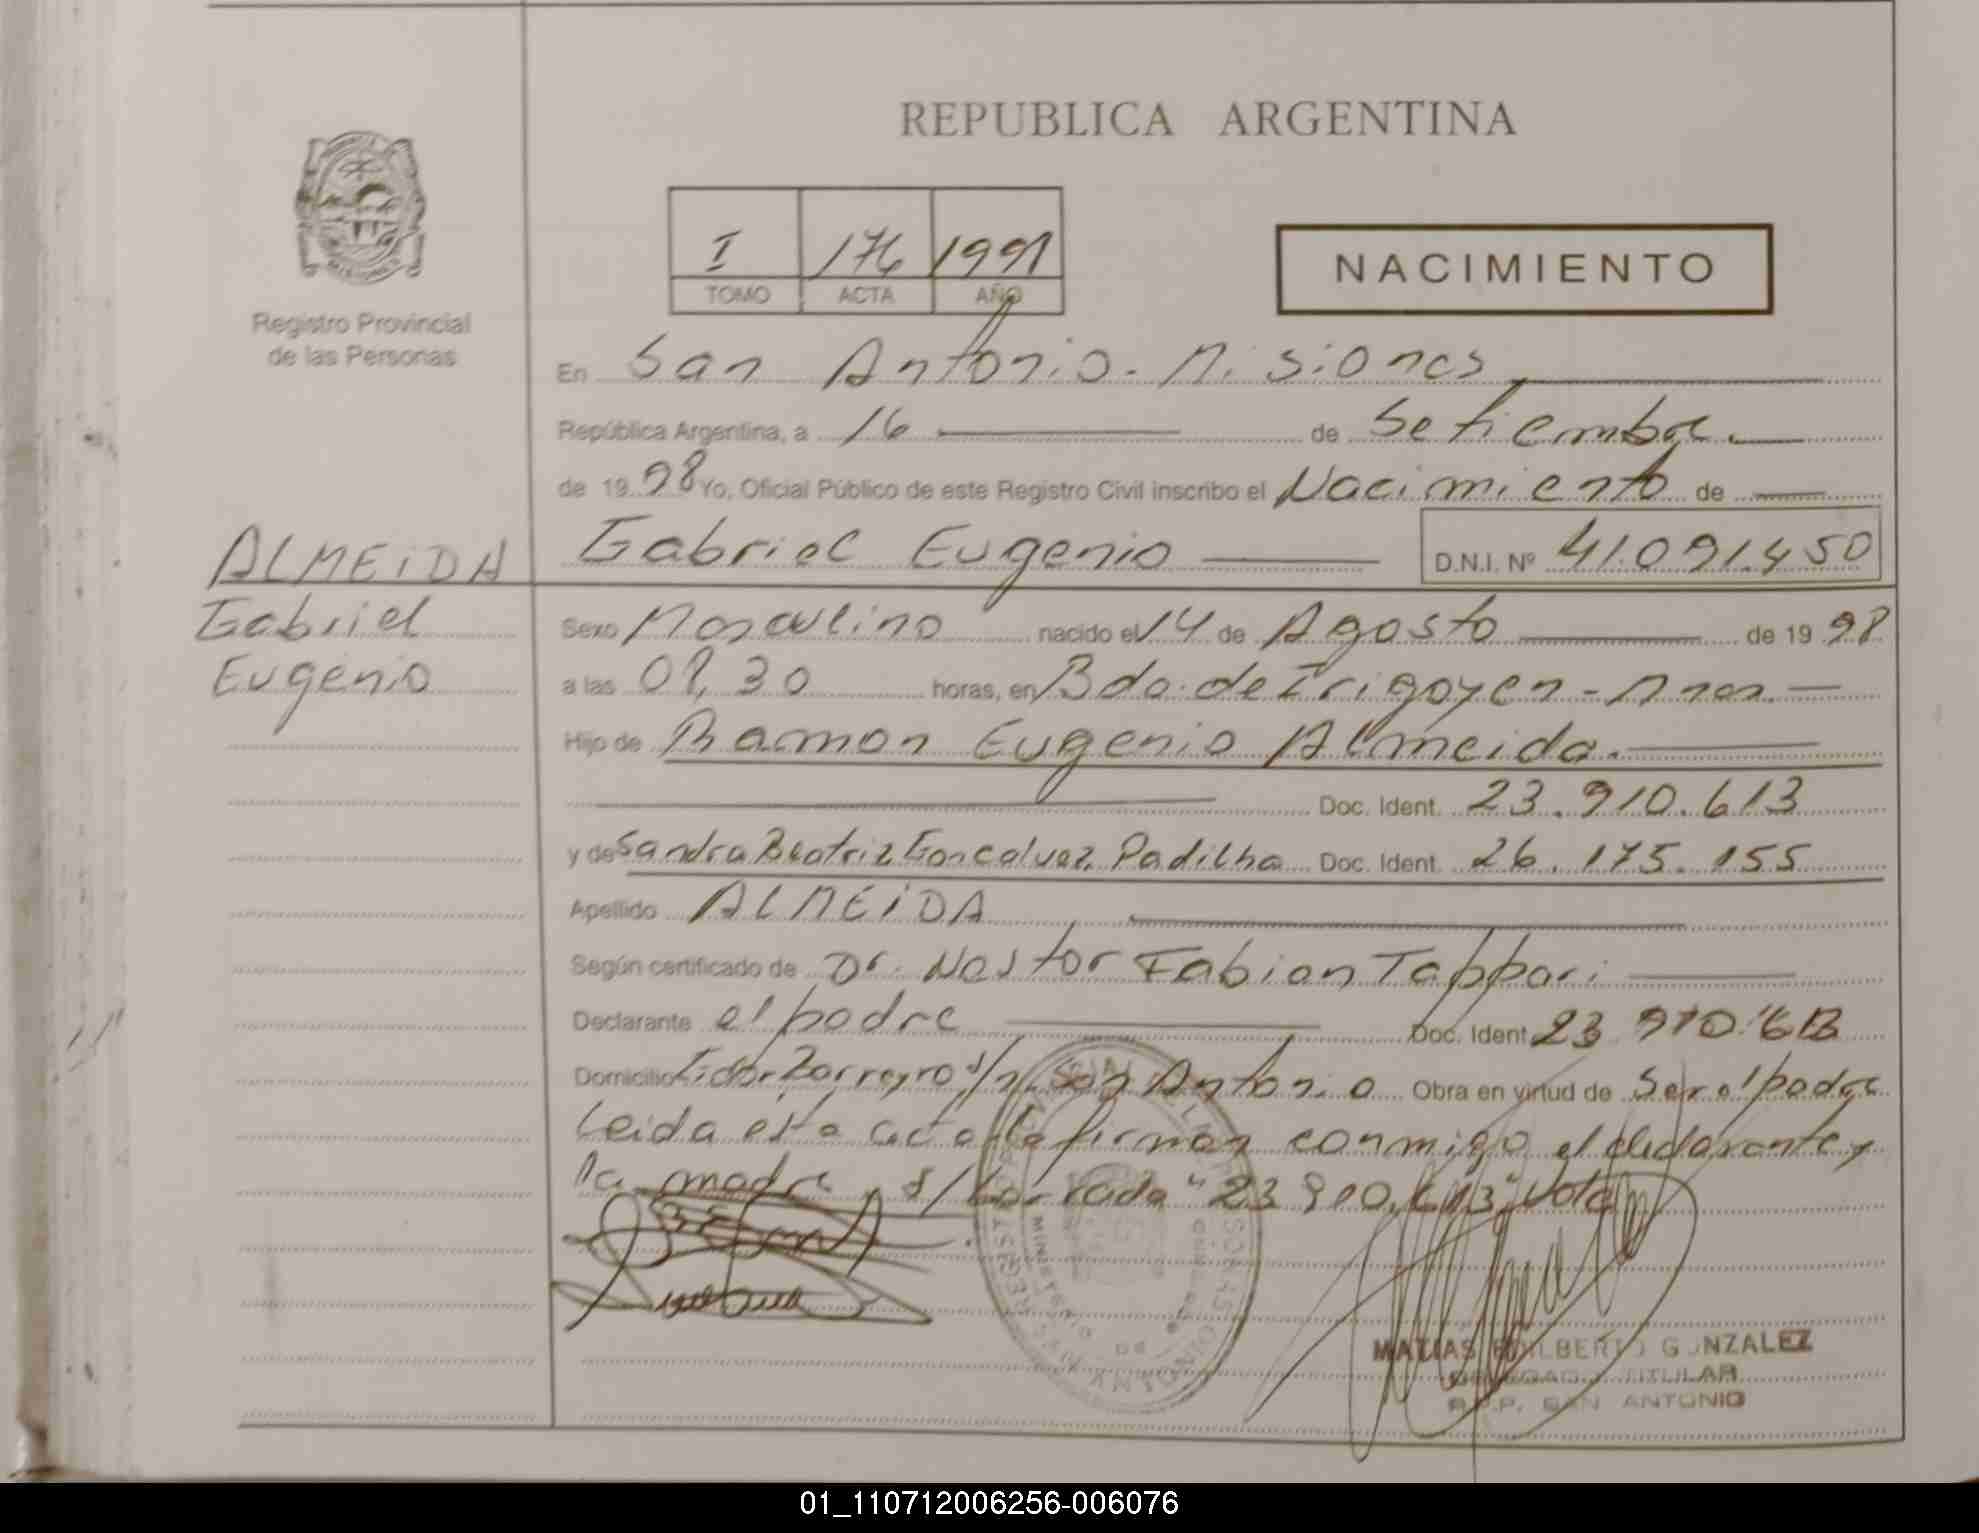 REPUBLICA ARGENTINA
MISIONES
Registro Provincial
de las Personas
I 176 1991
TOMO ACTA AÑO
NACIMIENTO
En San Antonio. Misiones
República Argentina, a 16 de Setiembre.
de 19 98 Yo, Oficial Público de este Registro Civil inscribo el Nacimiento de
ALMEIDA
Gabriel
Eugenio
Gabriel Eugenio D.N.I. Nº 41.091.450
Sexo Masculino nacido el 14 de Agosto de 19 98
a las 09,30 horas, en Bdo. de Irigoyen - Mnes.
Hijo de Ramon Eugenio Almeida.
Doc. Ident. 23.910.613
y de Sandra Beatriz Goncalvez Padilha Doc. Ident. 26.175.155
Apellido ALMEIDA
Según certificado de Dr. Nestor Fabian Tappari
Declarante el padre Doc. Ident. 23 910.613
Domicilio s/n. San Antonio Obra en virtud de ser el padre
Leida esta acta la firman conmigo el declarante y
la madre s/borrado "23 910.613" Vale
MATIAS GONZALEZ
DELEGADO TITULAR
R.P.P. SAN ANTONIO
01_110712006256-006076